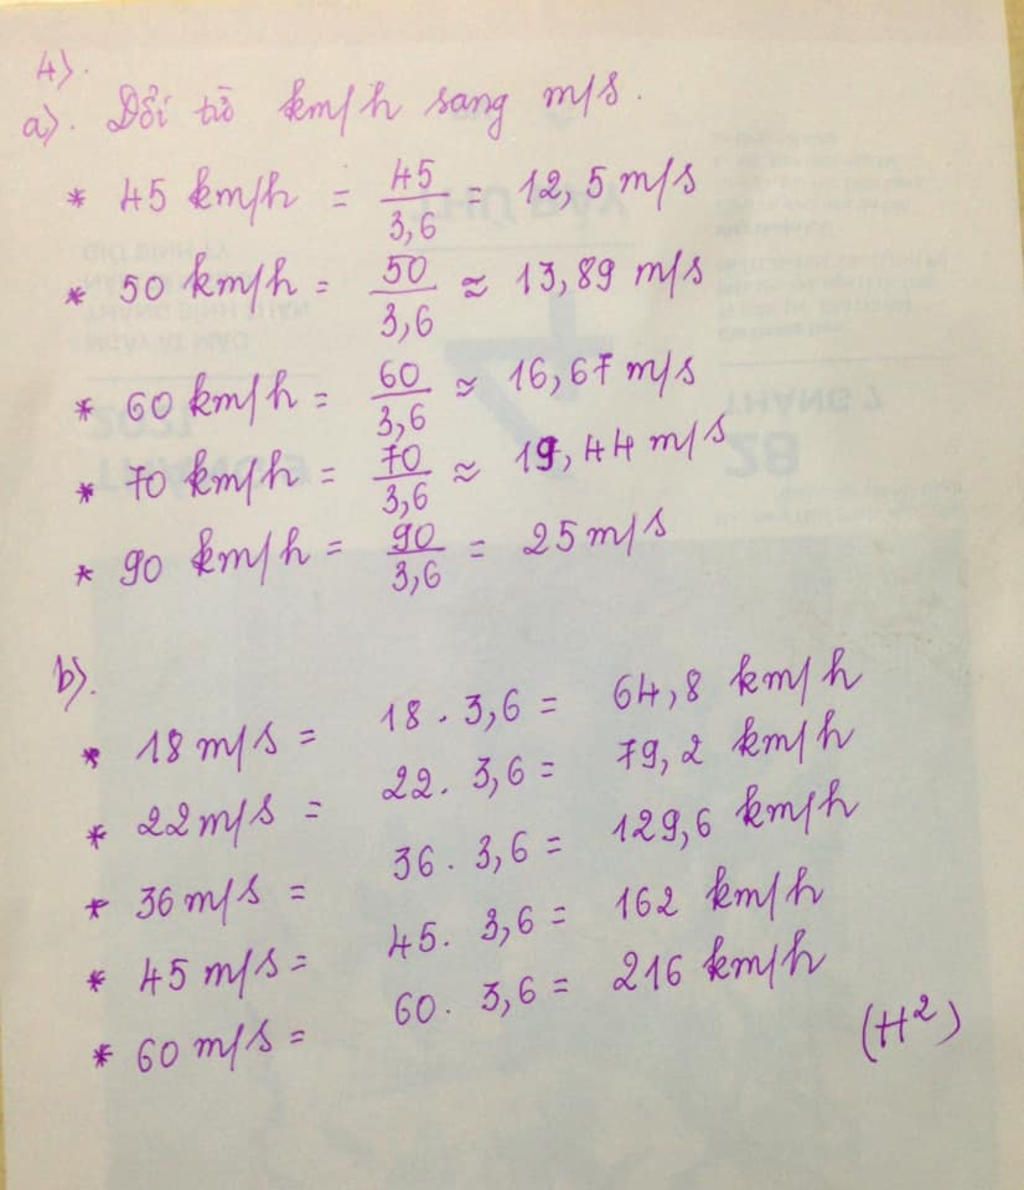 4).
a). Đổi từ km/h sang m/s.
* 45 km/h = 45/3,6 = 12,5 m/s
* 50 km/h = 50/3,6 ≈ 13,89 m/s
* 60 km/h = 60/3,6 ≈ 16,67 m/s
* 70 km/h = 70/3,6 ≈ 19,44 m/s
* 90 km/h = 90/3,6 = 25 m/s
b).
* 18 m/s = 18 . 3,6 = 64,8 km/h
* 22 m/s = 22 . 3,6 = 79,2 km/h
* 36 m/s = 36 . 3,6 = 129,6 km/h
* 45 m/s = 45 . 3,6 = 162 km/h
* 60 m/s = 60 . 3,6 = 216 km/h
(H²)
THỨ BẢY
THÁNG 7
28